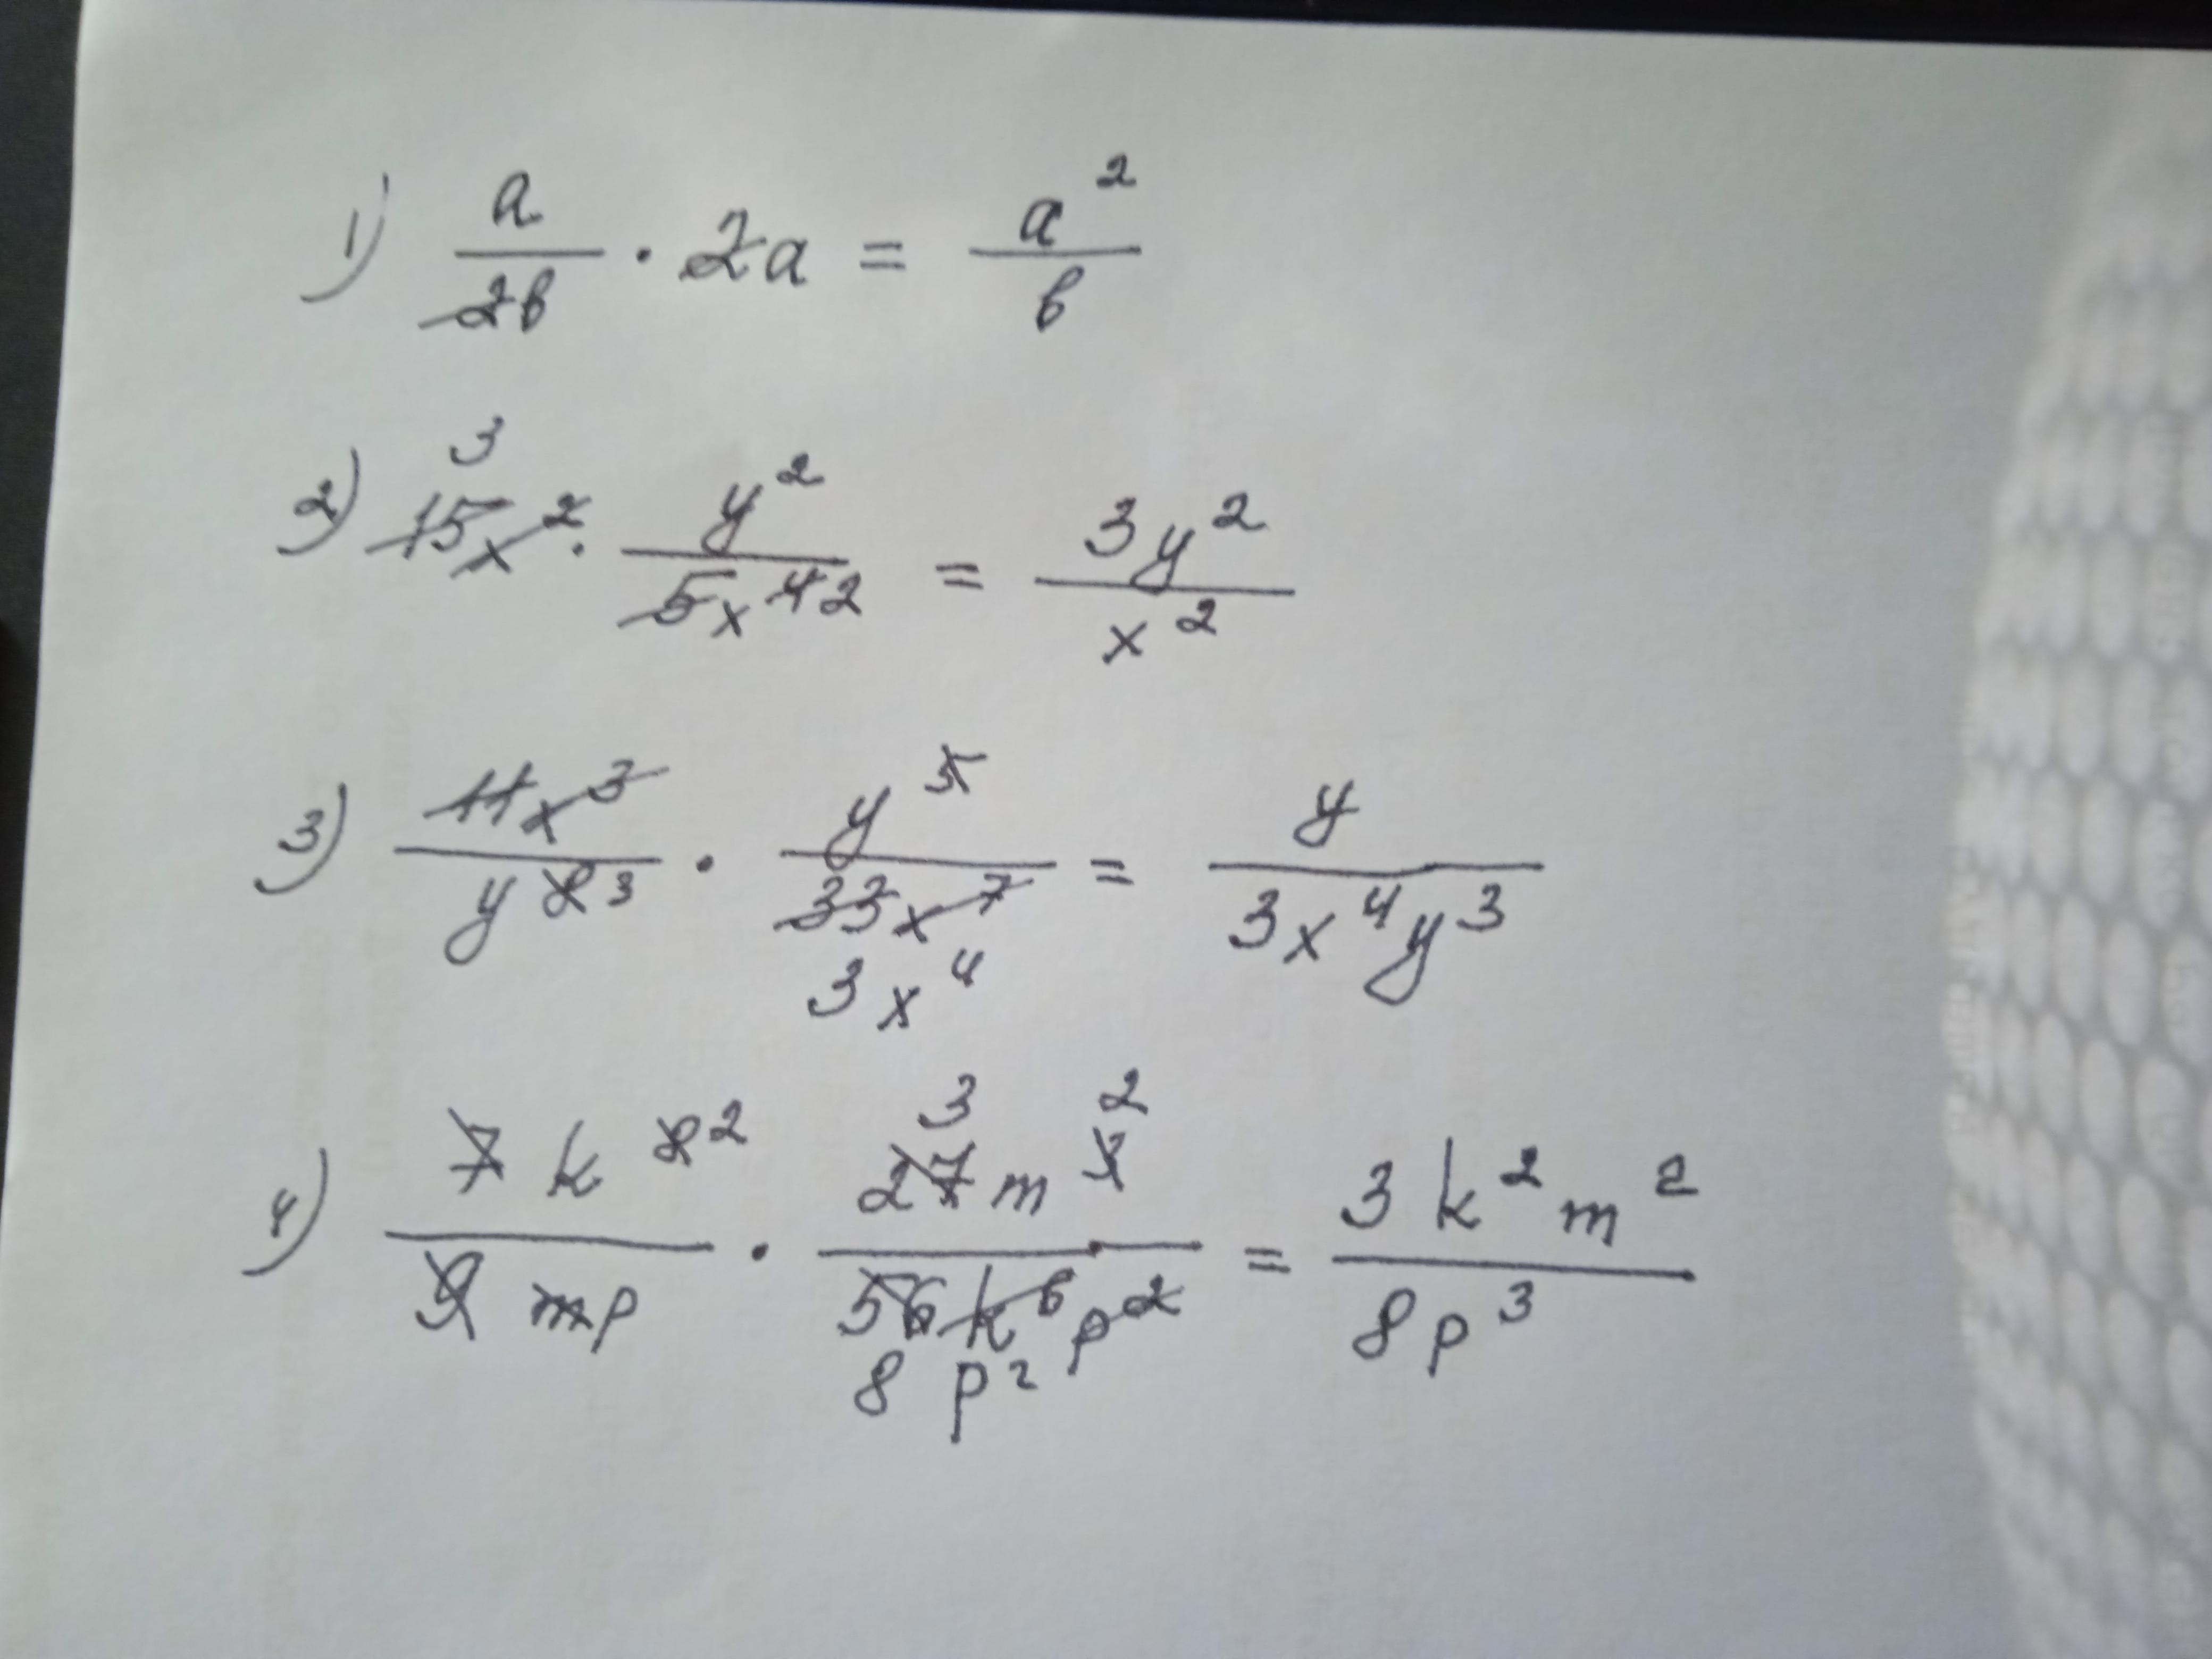 1) a/2b · 2a = a²/b
2) 15x² 3 · y²/5x⁴ 2 = 3y²/x²
3) 11x³/y⁸ 3 · y⁵/33x⁷ 3x⁴ = y/3x⁴y³
4) 7k⁸ 2/9mp · 27 3 m³ 2/56k⁶p² 8p² = 3k²m²/8p³